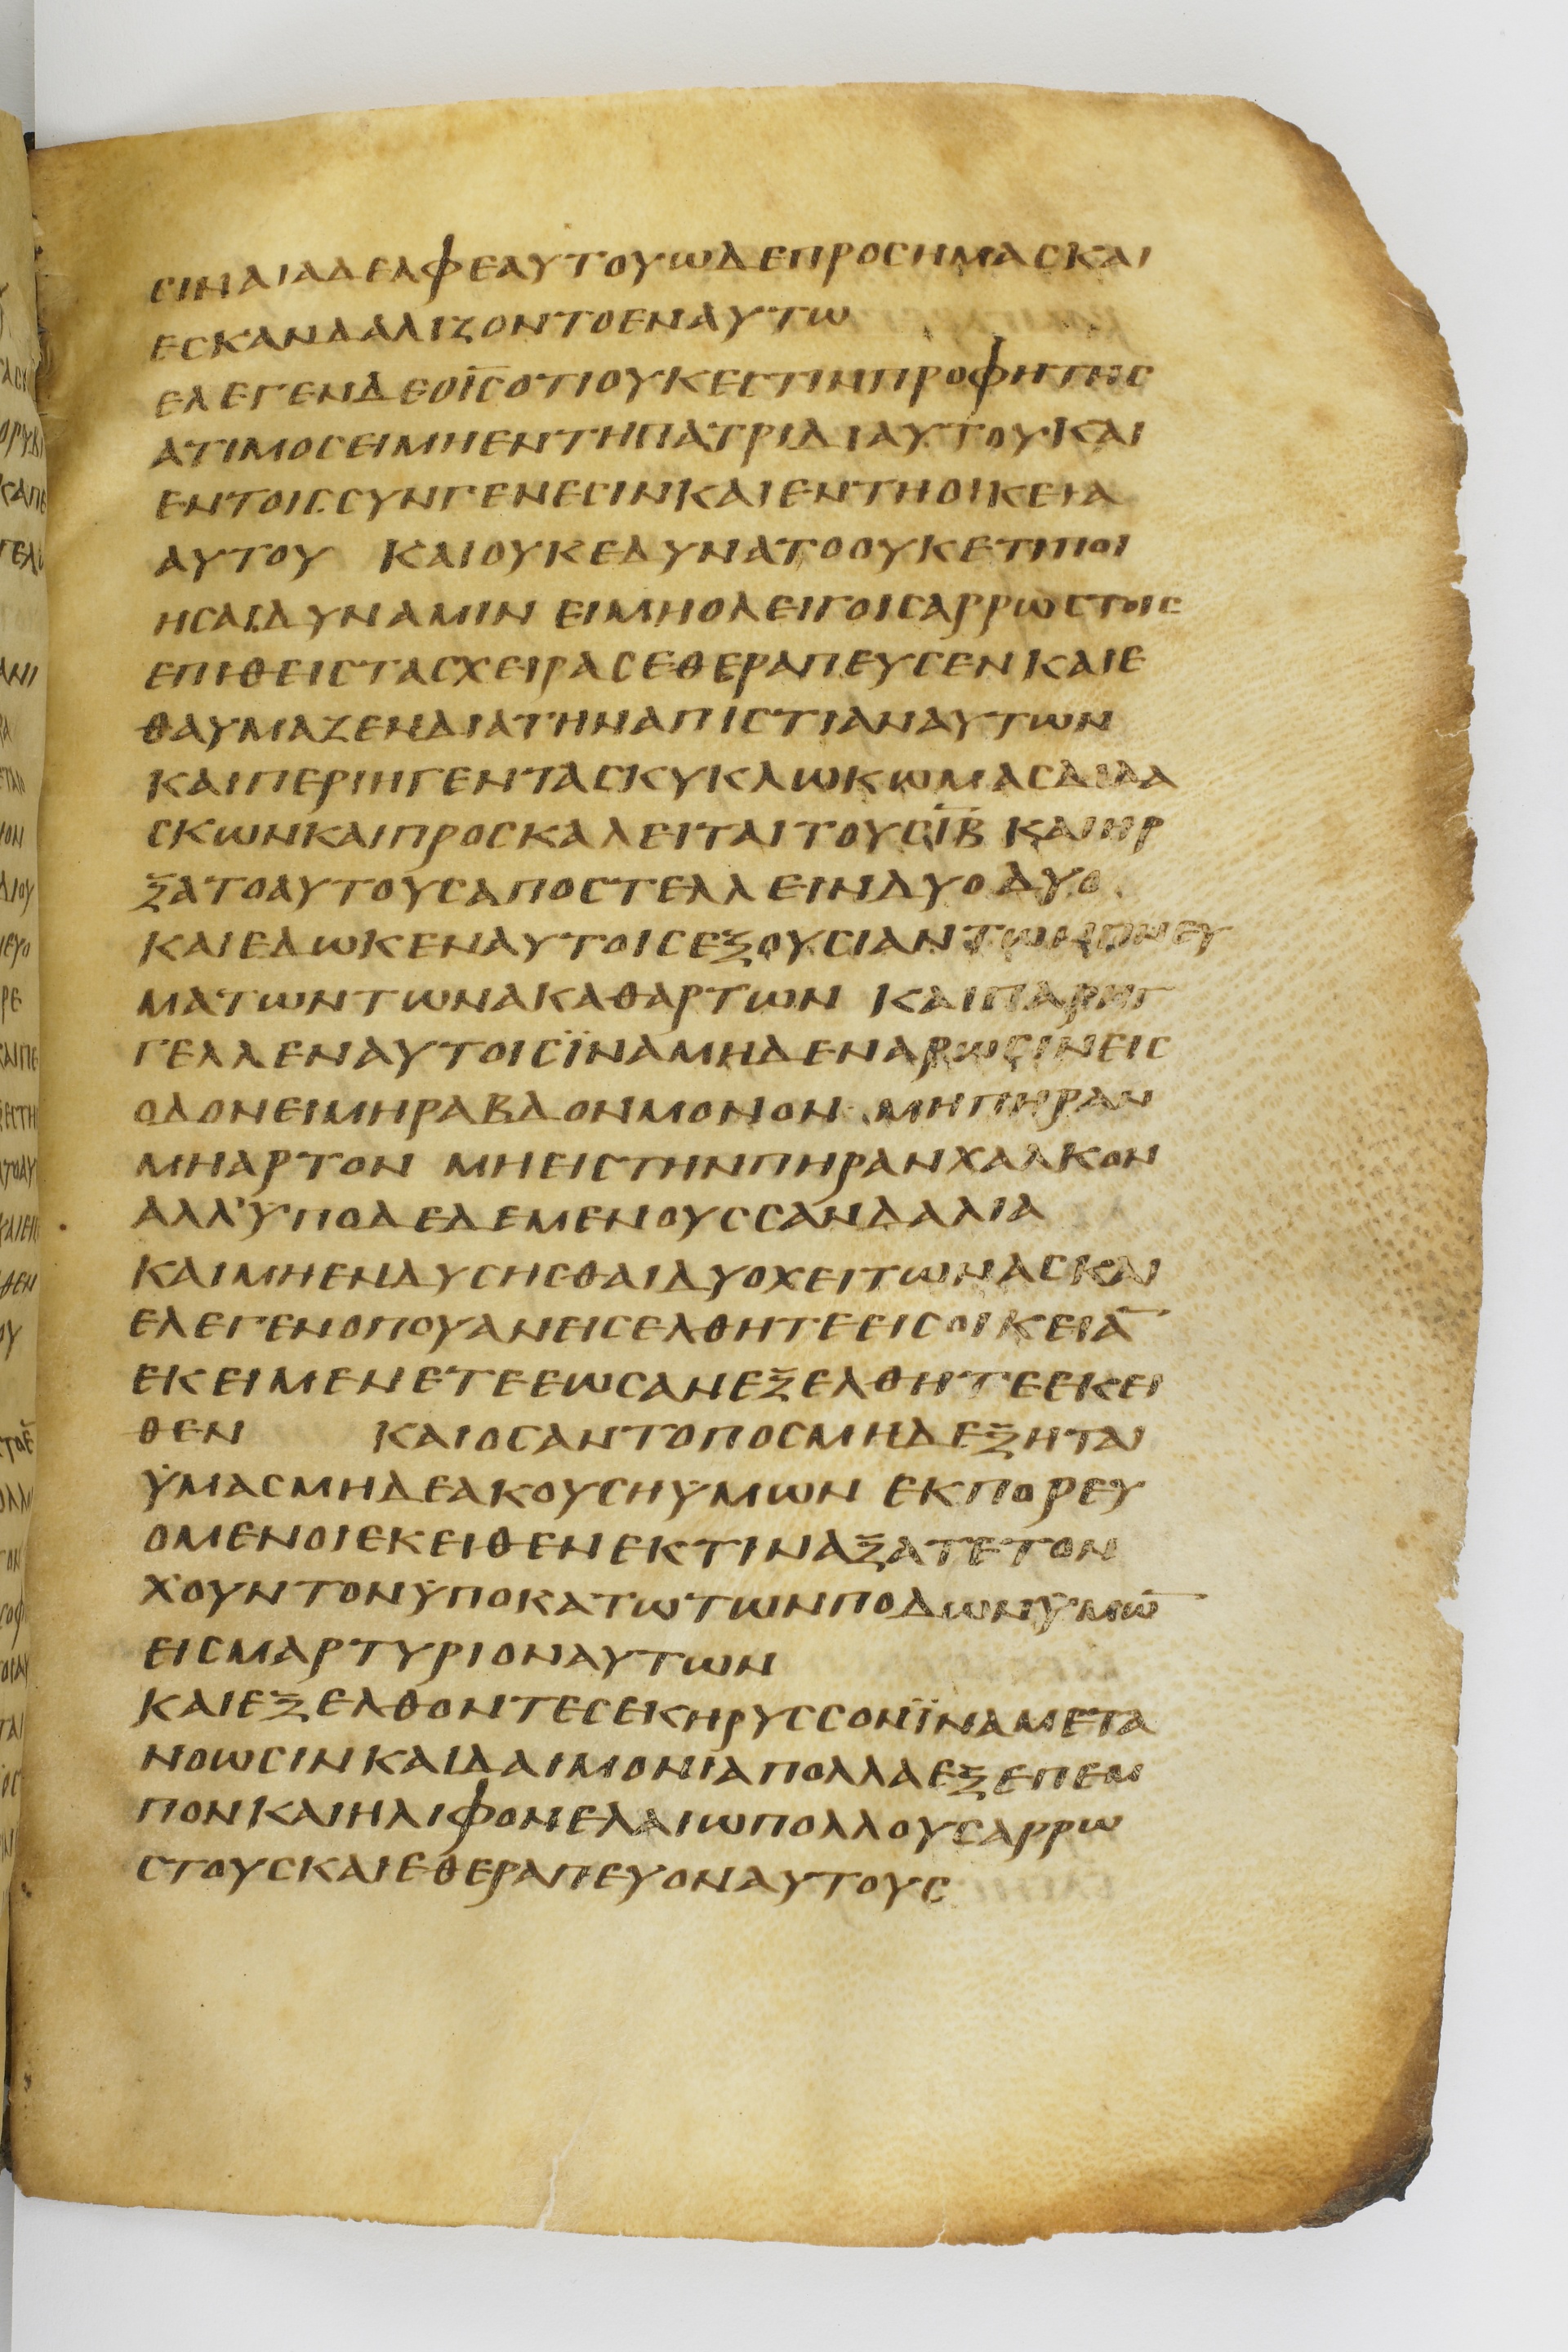 ϹΙΝΑΙΑΔΕΛΦΕΑΥΤΟΥΩΔΕΠΡΟϹΗΜΑϹΚΑΙ
ΕϹΚΑΝΔΑΛΙΖΟΝΤΟΕΝΑΥΤΩ
ΕΛΕΓΕΝΔΕΟΙ̅Ϲ̅ΟΤΙΟΥΚΕϹΤΙΝΠΡΟΦΗΤΗϹ
ΑΤΙΜΟϹΕΙΜΗΕΝΤΗΠΑΤΡΙΔΙΑΥΤΟΥΚΑΙ
ΕΝΤΟΙϹϹΥΝΓΕΝΕϹΙΝΚΑΙΕΝΤΗΟΙΚΕΙΑ
ΑΥΤΟΥ ΚΑΙΟΥΚΕΔΥΝΑΤΟΟΥΚΕΤΙΠΟΙ
ΗϹΑΙΔΥΝΑΜΙΝ ΕΙΜΗΟΛΕΙΓΟΙϹΑΡΡΩϹΤΟΙϹ
ΕΠΙΘΕΙϹΤΑϹΧΕΙΡΑϹΕΘΕΡΑΠΕΥϹΕΝΚΑΙΕ
ΘΑΥΜΑΖΕΝΔΙΑΤΗΝΑΠΙϹΤΙΑΝΑΥΤΩΝ
ΚΑΙΠΕΡΙΗΓΕΝΤΑϹΚΥΚΛΩΚΩΜΑϹΔΙΔΑ
ϹΚΩΝΚΑΙΠΡΟϹΚΑΛΕΙΤΑΙΤΟΥϹΙ̅Β̅ ΚΑΙΗΡ
ΞΑΤΟΑΥΤΟΥϹΑΠΟϹΤΕΛΛΕΙΝΔΥΟΔΥΟ
ΚΑΙΕΔΩΚΕΝΑΥΤΟΙϹΕΞΟΥϹΙΑΝΤΩΝΠΝΕΥ
ΜΑΤΩΝΤΩΝΑΚΑΘΑΡΤΩΝ ΚΑΙΠΑΡΗΓ
ΓΕΛΛΕΝΑΥΤΟΙϹΪΝΑΜΗΔΕΝΑΡΩϹΙΝΕΙϹ
ΟΔΟΝΕΙΜΗΡΑΒΔΟΝΜΟΝΟΝ ΜΗΠΗΡΑΝ
ΜΗΑΡΤΟΝ ΜΗΕΙϹΤΗΝΠΗΡΑΝΧΑΛΚΟΝ
ΑΛΛ'ΫΠΟΔΕΔΕΜΕΝΟΥϹϹΑΝΔΑΛΙΑ
ΚΑΙΜΗΕΝΔΥϹΗϹΘΑΙΔΥΟΧΕΙΤΩΝΑϹΚΑΙ
ΕΛΕΓΕΝΟΠΟΥΑΝΕΙϹΕΛΘΗΤΕΕΙϹΟΙΚΕΙΑ̅
ΕΚΕΙΜΕΝΕΤΕΕΩϹΑΝΕΞΕΛΘΗΤΕΕΚΕΙ
ΘΕΝ ΚΑΙΟϹΑΝΤΟΠΟϹΜΗΔΕΞΗΤΑΙ
ΫΜΑϹΜΗΔΕΑΚΟΥϹΗΫΜΩΝ ΕΚΠΟΡΕΥ
ΟΜΕΝΟΙΕΚΕΙΘΕΝΕΚΤΙΝΑΞΑΤΕΤΟΝ
ΧΟΥΝΤΟΝΫΠΟΚΑΤΩΤΩΝΠΟΔΩΝΫΜΩ̅
ΕΙϹΜΑΡΤΥΡΙΟΝΑΥΤΩΝ
ΚΑΙΕΞΕΛΘΟΝΤΕϹΕΚΗΡΥϹϹΟΝΪΝΑΜΕΤΑ
ΝΟΩϹΙΝΚΑΙΔΑΙΜΟΝΙΑΠΟΛΛΑΕΞΕΠΕΜ
ΠΟΝΚΑΙΗΛΙΦΟΝΕΛΑΙΩΠΟΛΛΟΥϹΑΡΡΩ
ϹΤΟΥϹΚΑΙΕΘΕΡΑΠΕΥΟΝΑΥΤΟΥϹ